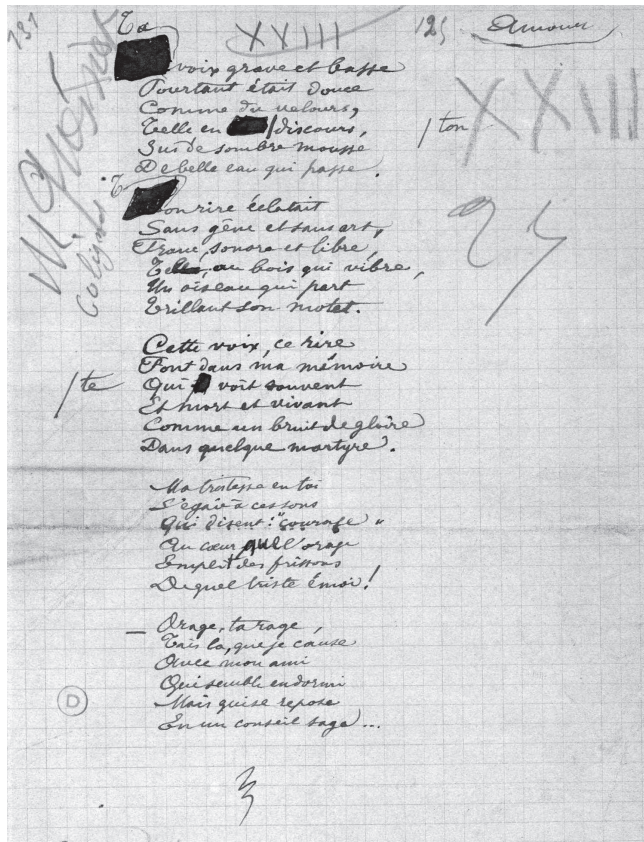 131
XXIII
125
Amour
Ta
voix grave et basse
Pourtant était douce
Comme du velours,
Telle en /discours,
/ton
Sus de sombre mousse
De belle eau qui passe.
XXIII
T
on rire éclatait
Sans gêne et sans art,
Franc, sonore et libre,
Tel, au bois qui vibre,
Un oiseau qui part
Trillant son motet.
25
Cette voix, ce rire
Font dans ma mémoire
/te
Qui voit souvent
Et mort et vivant
Comme un bruit de gloire
Dans quelque martyre.
Ma tristesse en toi
S'égaie à ces sons
Qui disent : "courage"
Au cœur que l'orage
Emplit des frissons
De quel triste émoi !
— Orage, ta rage,
Tais la, que je cause
Avec mon ami
Qui semble endormi
Mais qui se repose
En un conseil sage...
D
M.